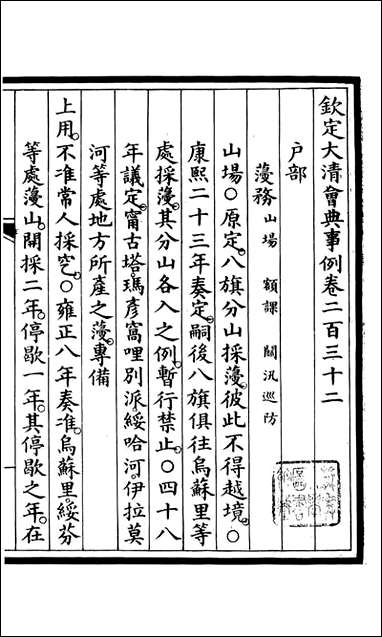 欽定大清會典事例卷二百三十二
戶部
蓡務山場 額課 關汛巡防
山場○原定。八旗分山採蓡。彼此不得越境。○
康熙二十三年奏定。嗣後八旗俱往烏蘇里等
處採蓡。其分山各入之例。暫行禁止。○四十八
年議定。甯古塔。瑪彥窩哩別派。綏哈河。伊拉莫
河等處地方所產之蓡。專備
上用。不准常人採穵。○雍正八年奏准。烏蘇里。綏芬
等處蓡山。開採二年。停歇一年。其停歇之年。在